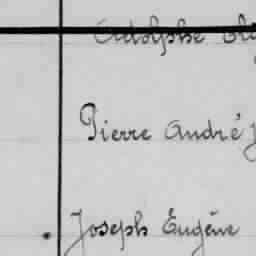 Adolphe
Pierre André
Joseph Eugène